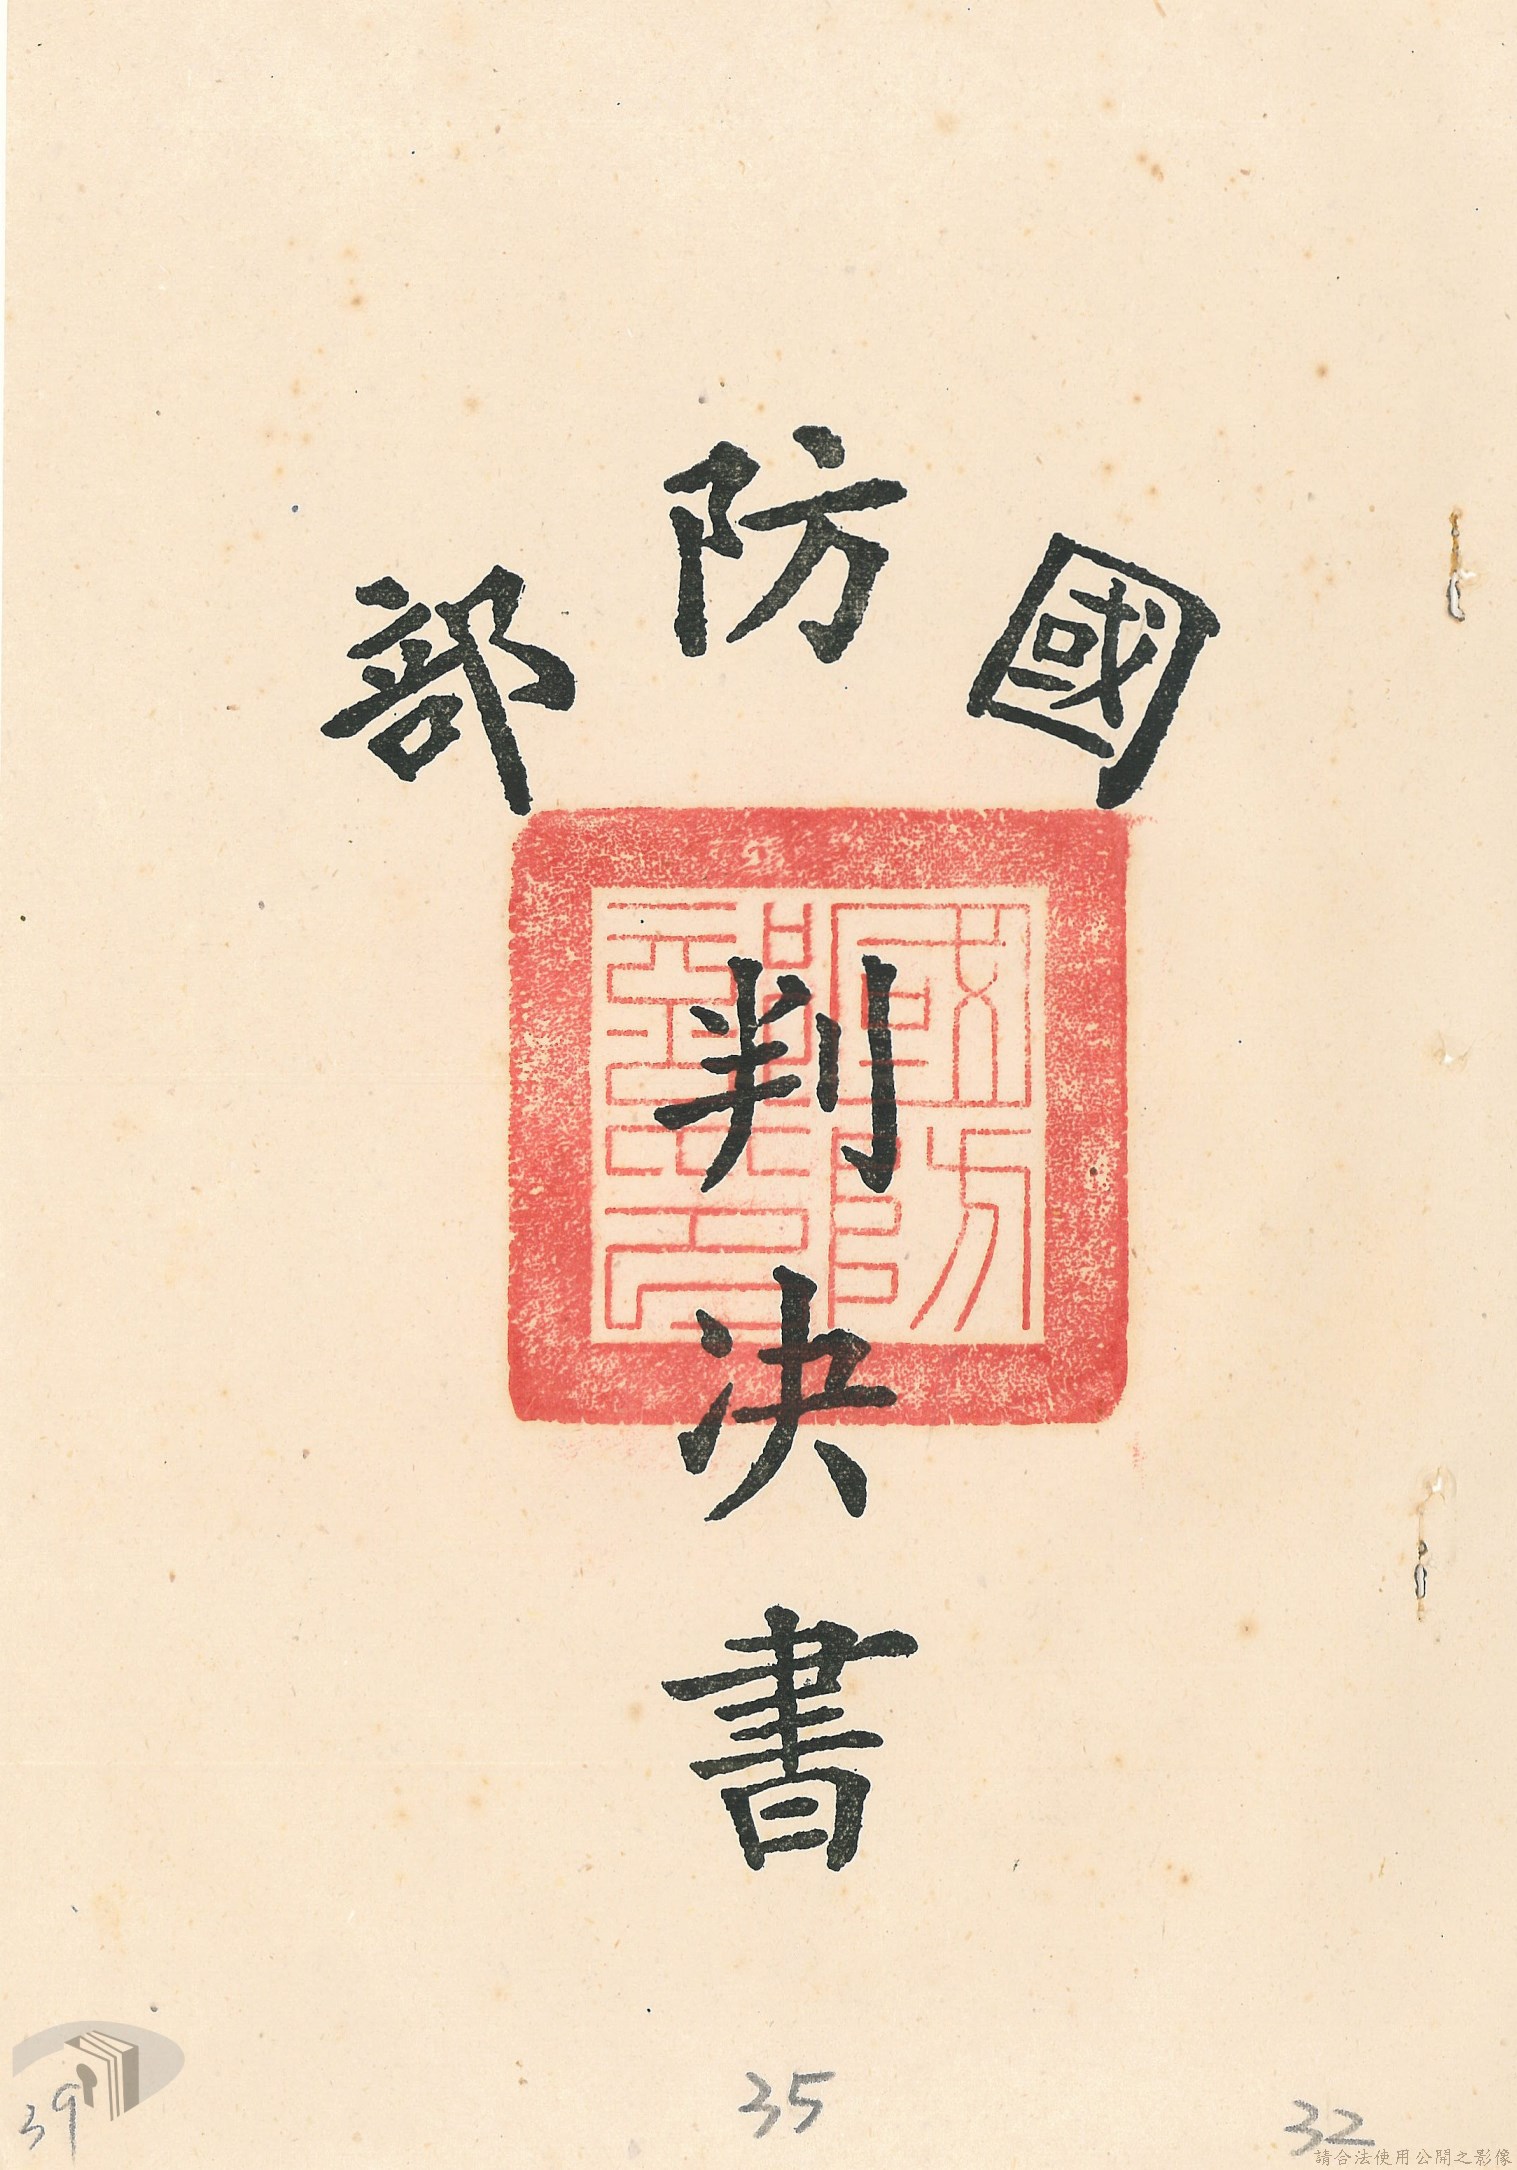 國防部
判決書
國防部
39
35
32
請合法使用公開之影像